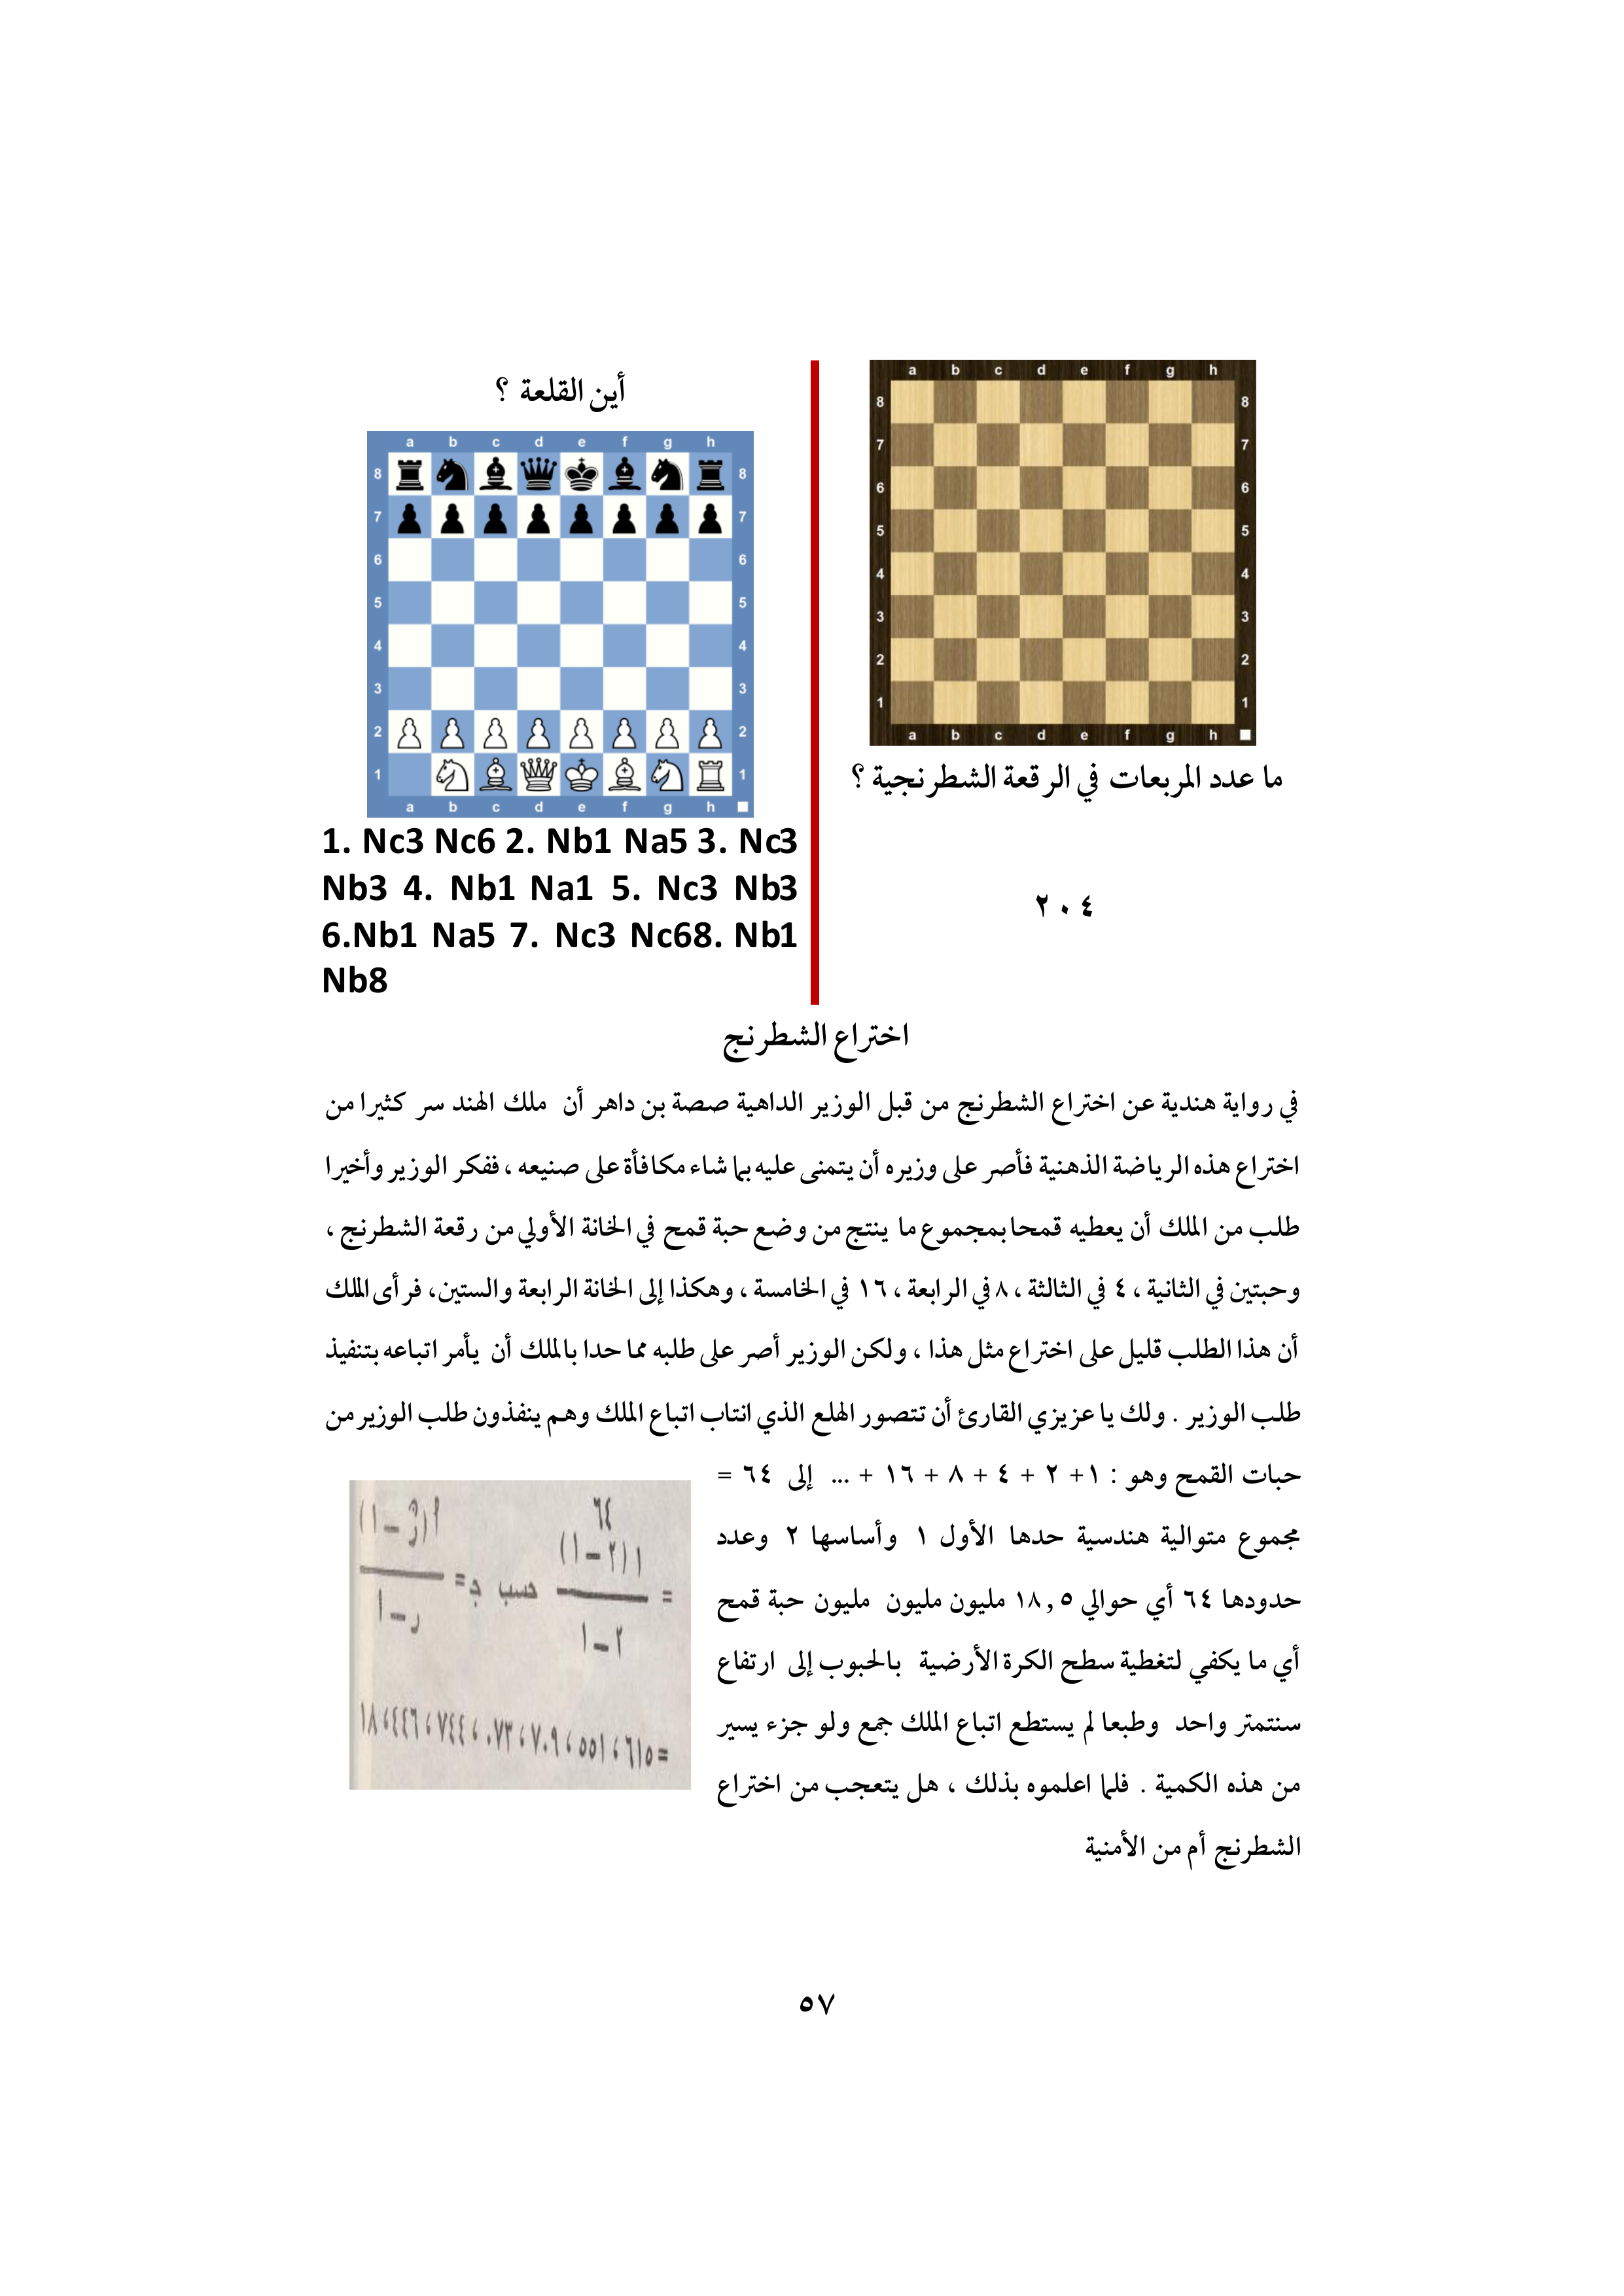 a b c d e f g h
8 8
7 7
6 6
5 5
4 4
3 3
2 2
1 1
a b c d e f g h
ما عدد المربعات في الرقعة الشطرنجية ؟
٢٠٤
أين القلعة ؟
a b c d e f g h
8 8
7 7
6 6
5 5
4 4
3 3
2 2
1 1
a b c d e f g h
1. Nc3 Nc6 2. Nb1 Na5 3. Nc3
Nb3 4. Nb1 Na1 5. Nc3 Nb3
6.Nb1 Na5 7. Nc3 Nc68. Nb1
Nb8
اختراع الشطرنج
في رواية هندية عن اختراع الشطرنج من قبل الوزير الداهية صصة بن داهر أن ملك الهند سر كثيرا من
اختراع هذه الرياضة الذهنية فأصر على وزيره أن يتمنى عليه بما شاء مكافأة على صنيعه ، ففكر الوزير وأخيرا
طلب من الملك أن يعطيه قمحا بمجموع ما ينتج من وضع حبة قمح في الخانة الأولي من رقعة الشطرنج ،
وحبتين في الثانية ، ٤ في الثالثة ، ٨ في الرابعة ، ١٦ في الخامسة ، وهكذا إلى الخانة الرابعة والستين، فرأى الملك
أن هذا الطلب قليل على اختراع مثل هذا ، ولكن الوزير أصر على طلبه مما حدا بالملك أن يأمر اتباعه بتنفيذ
طلب الوزير . ولك يا عزيزي القارئ أن تتصور الهلع الذي انتاب اتباع الملك وهم ينفذون طلب الوزير من
حبات القمح وهو : ١+ ٢ + ٤ + ٨ + ١٦ + ... إلى ٦٤ =
مجموع متوالية هندسية حدها الأول ١ وأساسها ٢ وعدد
حدودها ٦٤ أي حوالي ١٨,٥ مليون مليون مليون حبة قمح
أي ما يكفي لتغطية سطح الكرة الأرضية بالحبوب إلى ارتفاع
سنتمتر واحد وطبعا لم يستطع اتباع الملك جمع ولو جزء يسير
من هذه الكمية . فلما اعلموه بذلك ، هل يتعجب من اختراع
الشطرنج أم من الأمنية
٦٤
١(٢-١)
= حسب جـ=
٢-١
ر-١
=١٨،٤٤٦،٧٤٤،٠٧٣،٧٠٩،٥٥١،٦١٥
٥٧